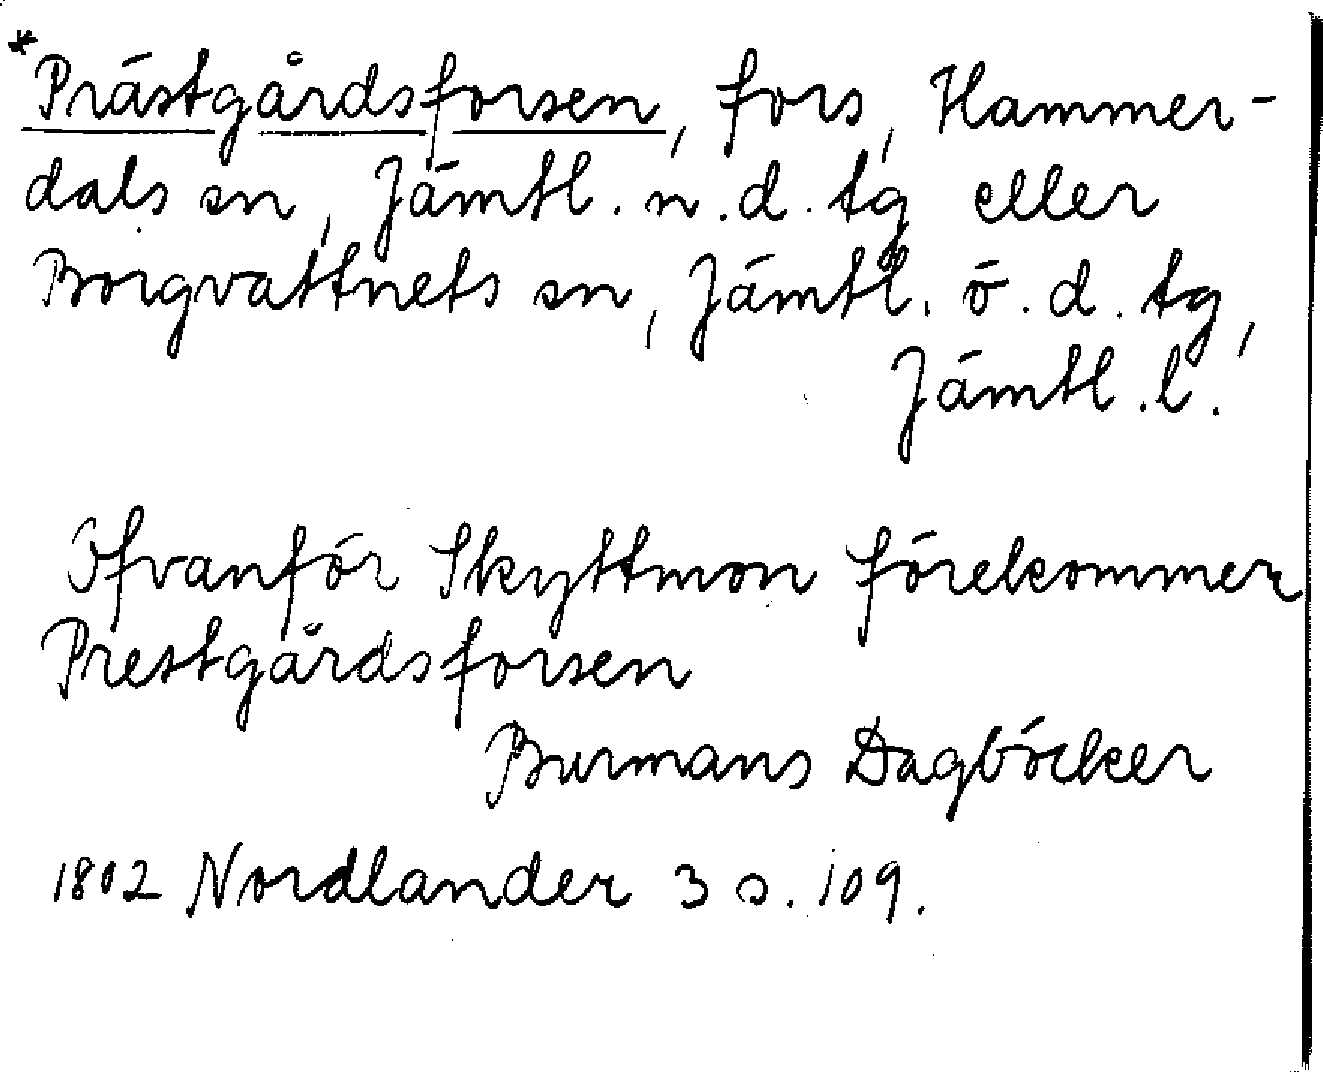 *Prästgårdsforsen, fors, Hammer-
dals sn, Jämtl. n.d. tg eller
Borgvattnets sn, Jämtl. ö.d. tg,
Jämtl. l.
Ofvanför Skyttmon förekommer
Prestgårdsforsen
Burmans Dagböcker
1802 Nordlander 3 s. 109.